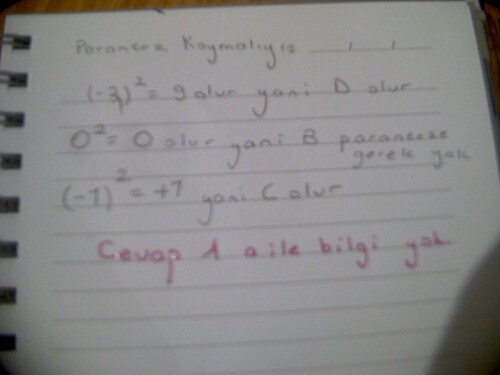 Parantez Koymalıyız , ,
(-3)² = 9 olur yani D olur
0² = 0 olur yani B paranteze
gerek yok
(-1)² = +1 yani C olur
Cevap A a ile bilgi yok